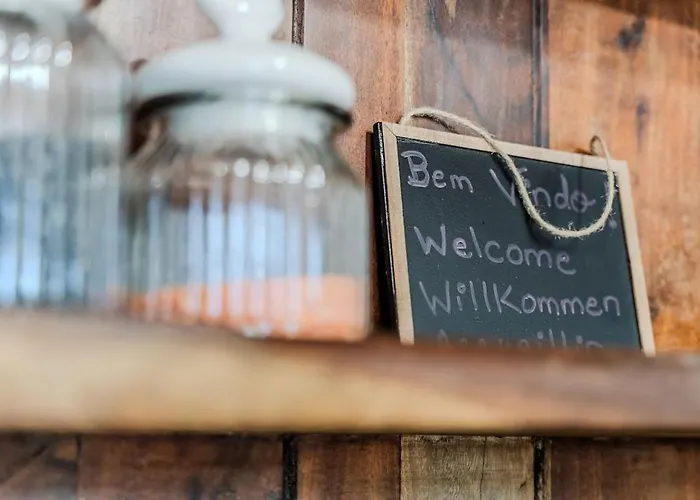 Bem Vindo!
Welcome
Willkommen